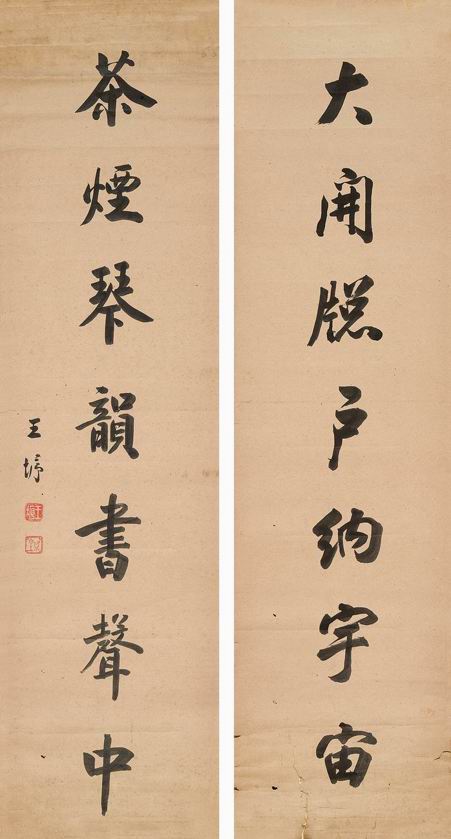 大開牕户納宇宙
茶煙琴韻書聲中
王垿